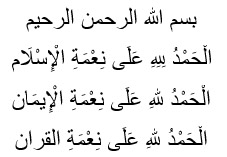 بسم الله الرحمن الرحيم
الْحَمْدُ لِلهِ عَلَى نِعْمَةِ الْإِسْلَام
الْحَمْدُ لِلهِ عَلَى نِعْمَةِ الْإِيمَان
الْحَمْدُ لِلهِ عَلَى نِعْمَةِ القران